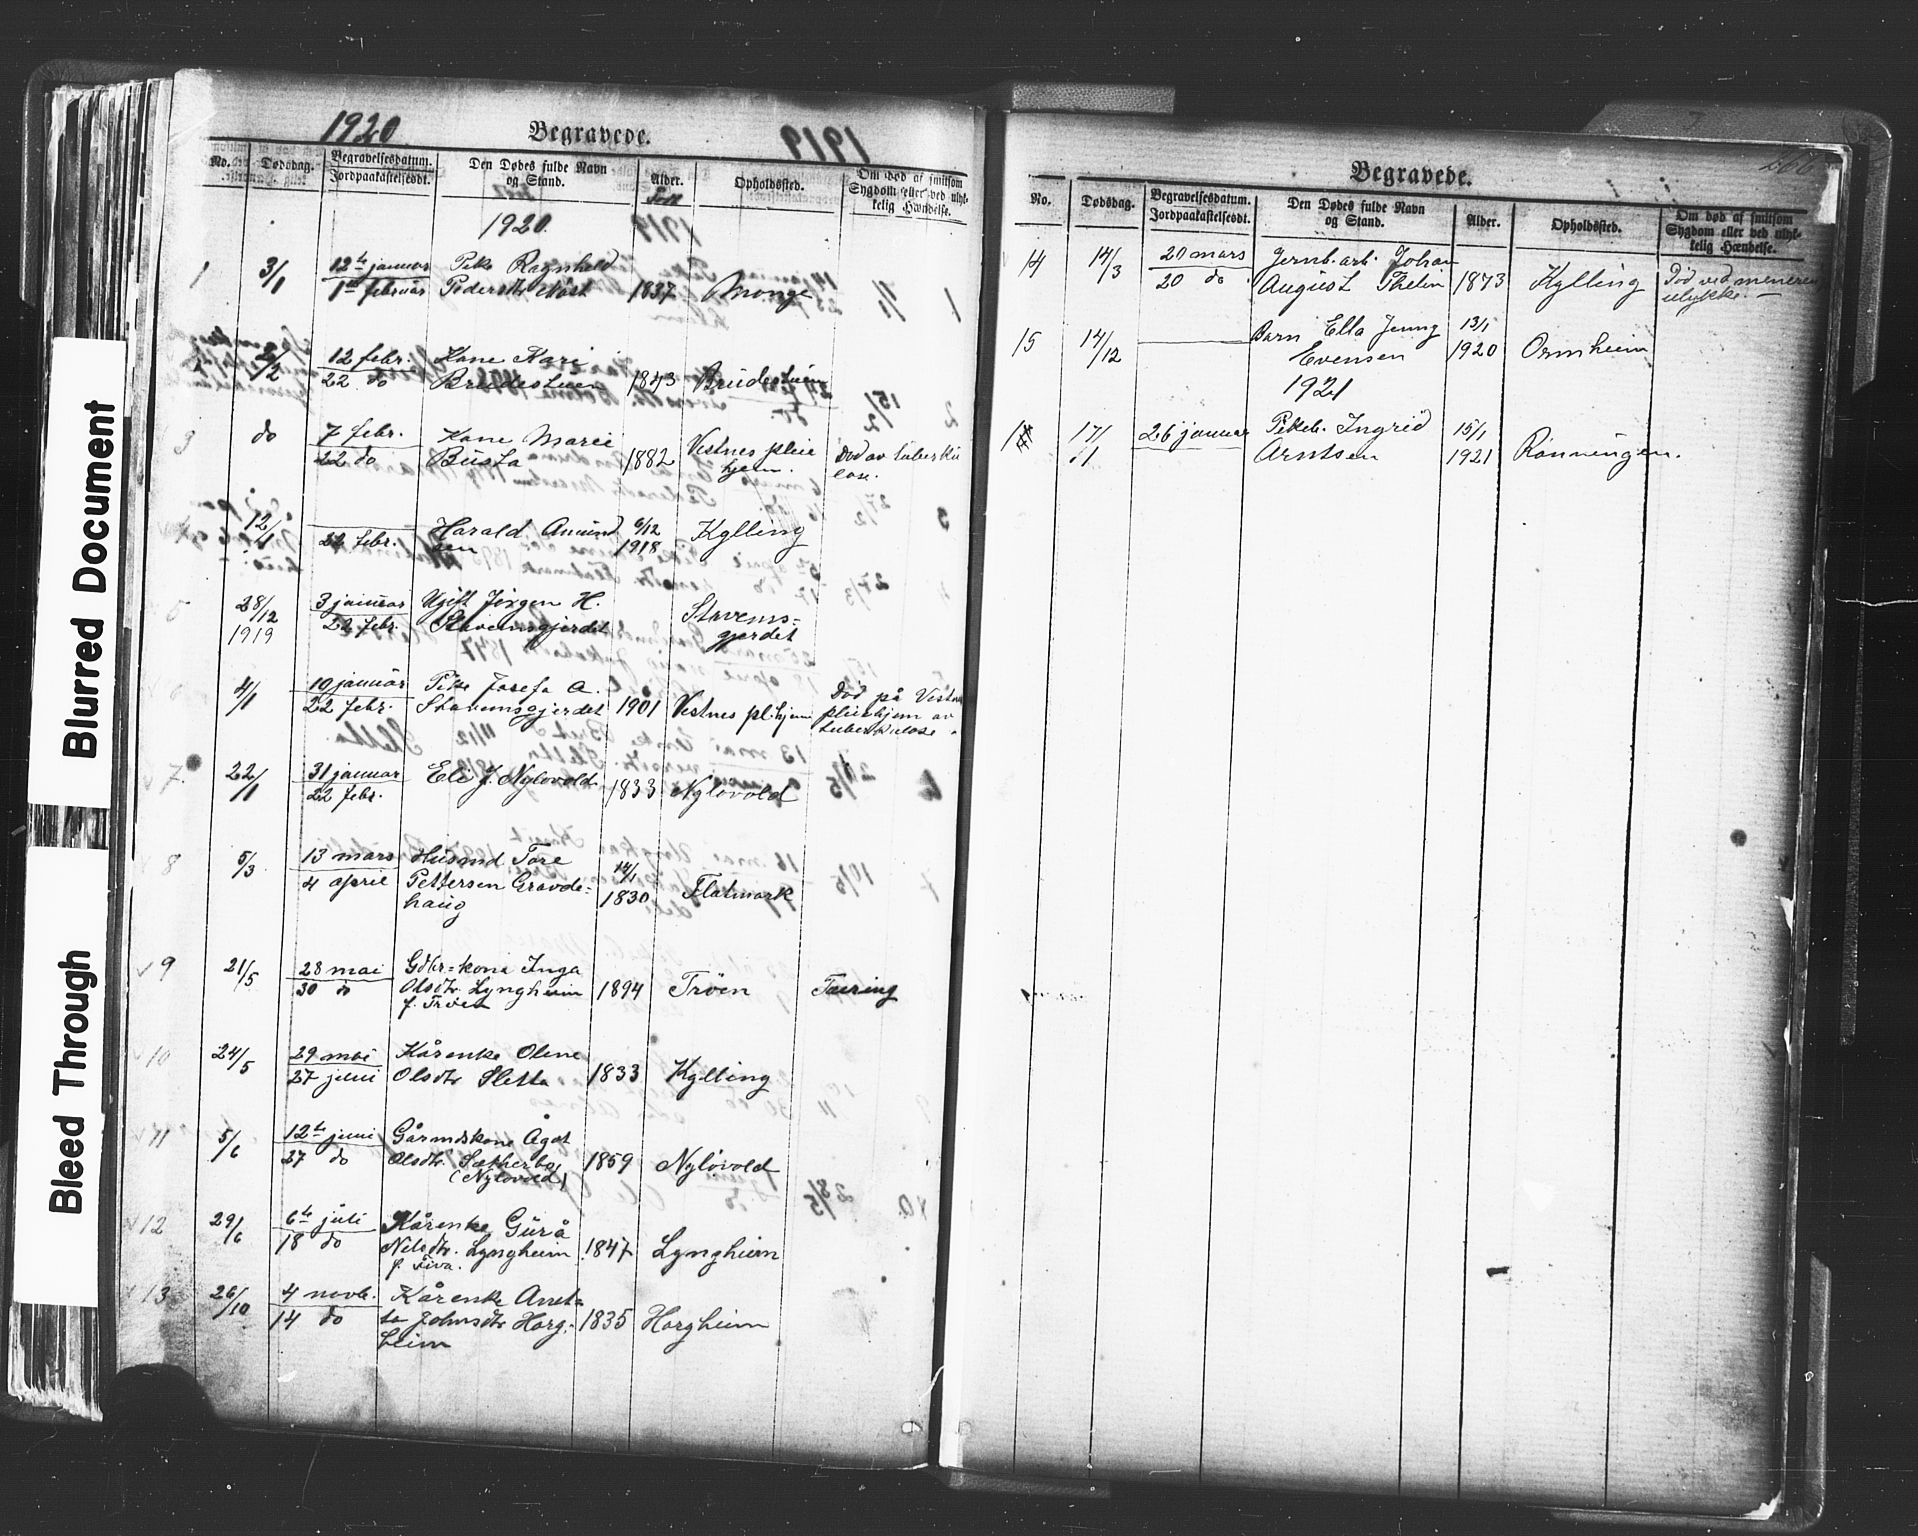 Blurred Document
Bleed Through
1920
Begravede.
No.
Dødsdag.
Begravelsesdatum.
Jordpaakastelsesdt.
Den Dødes fulde Navn
og Stand.
Alder.
Opholdssted.
Om død af smitsom
Sygdom eller ved ulyk-
kelig Hændelse.
1920.
1 3/1 12te januar Pike Ragnhild
1ste februar Pedersdtr. 1837 Monge
2 2/2 12 febr. Kone Kari
22 do Brudestuen 1843 Brudestuen
3 do 7 febr. Kone Marie Vestnes pleie Død av tuberku
22 do Busta 1882 hjem. lose.
4 12/1 Harald Amund 6/12 Kylling
22 febr. sen 1918
5 28/12 3 januar Ugift Jørgen H. Stavems=
1919 22 febr. Stavemsgjerdet gjerdet
6 4/1 10 januar Pike Josefa A. Død på Vestnes
22 febr. Stavemsgjerdet 1901 Vestnes pl.hjem pleiehjem av
tuberkulose.
7. 22/1 31 januar Eli J. Nylovold
22 febr. 1833 Nylovold
8 5/3 13 mars Husmd Tore 14/1
4 april Pettersen Gravde= 1830 Flatmark
haug
9 21/5 28 mai Gdbr=kone Inga
30 do Olsdtr. Lyngheim 1894 Trøen Tæring
f. Trøen
10 24/5 29 mai Kårenke Oline
27 juni Olsdtr Sletta 1833 Kylling
11 5/6 12te juni Gårmdskone Ågot
27 do Olsdtr. 1859 Nylovold
(Nylovold)
12 29/6 6te juli Kårenke Gurå
18 do Nilsdtr. Lyngheim 1847 Lyngheim
f. Fiva.
13 26/10 4 novb. Kårenke Anet=
14 do ta Johnsdtr Horg= 1835 Horgheim
heim
Begravede.
No.
Dødsdag.
Begravelsesdatum.
Jordpaakastelsesdt.
Den Dødes fulde Navn
og Stand.
Alder.
Opholdssted.
Om død af smitsom
Sygdom eller ved ulyk-
kelig Hændelse.
14 14/3 20 mars Jernb.arb. Johan Død ved
20 do August Thelin 1873 Kylling ulykke.
15 14/12 Barn Ella Jenny 13/1
Evensen 1920 Ormheim
1921
1 17/1 26 januar Pikeb. Ingrid 15/1
Arntsen 1921 Rønningen.